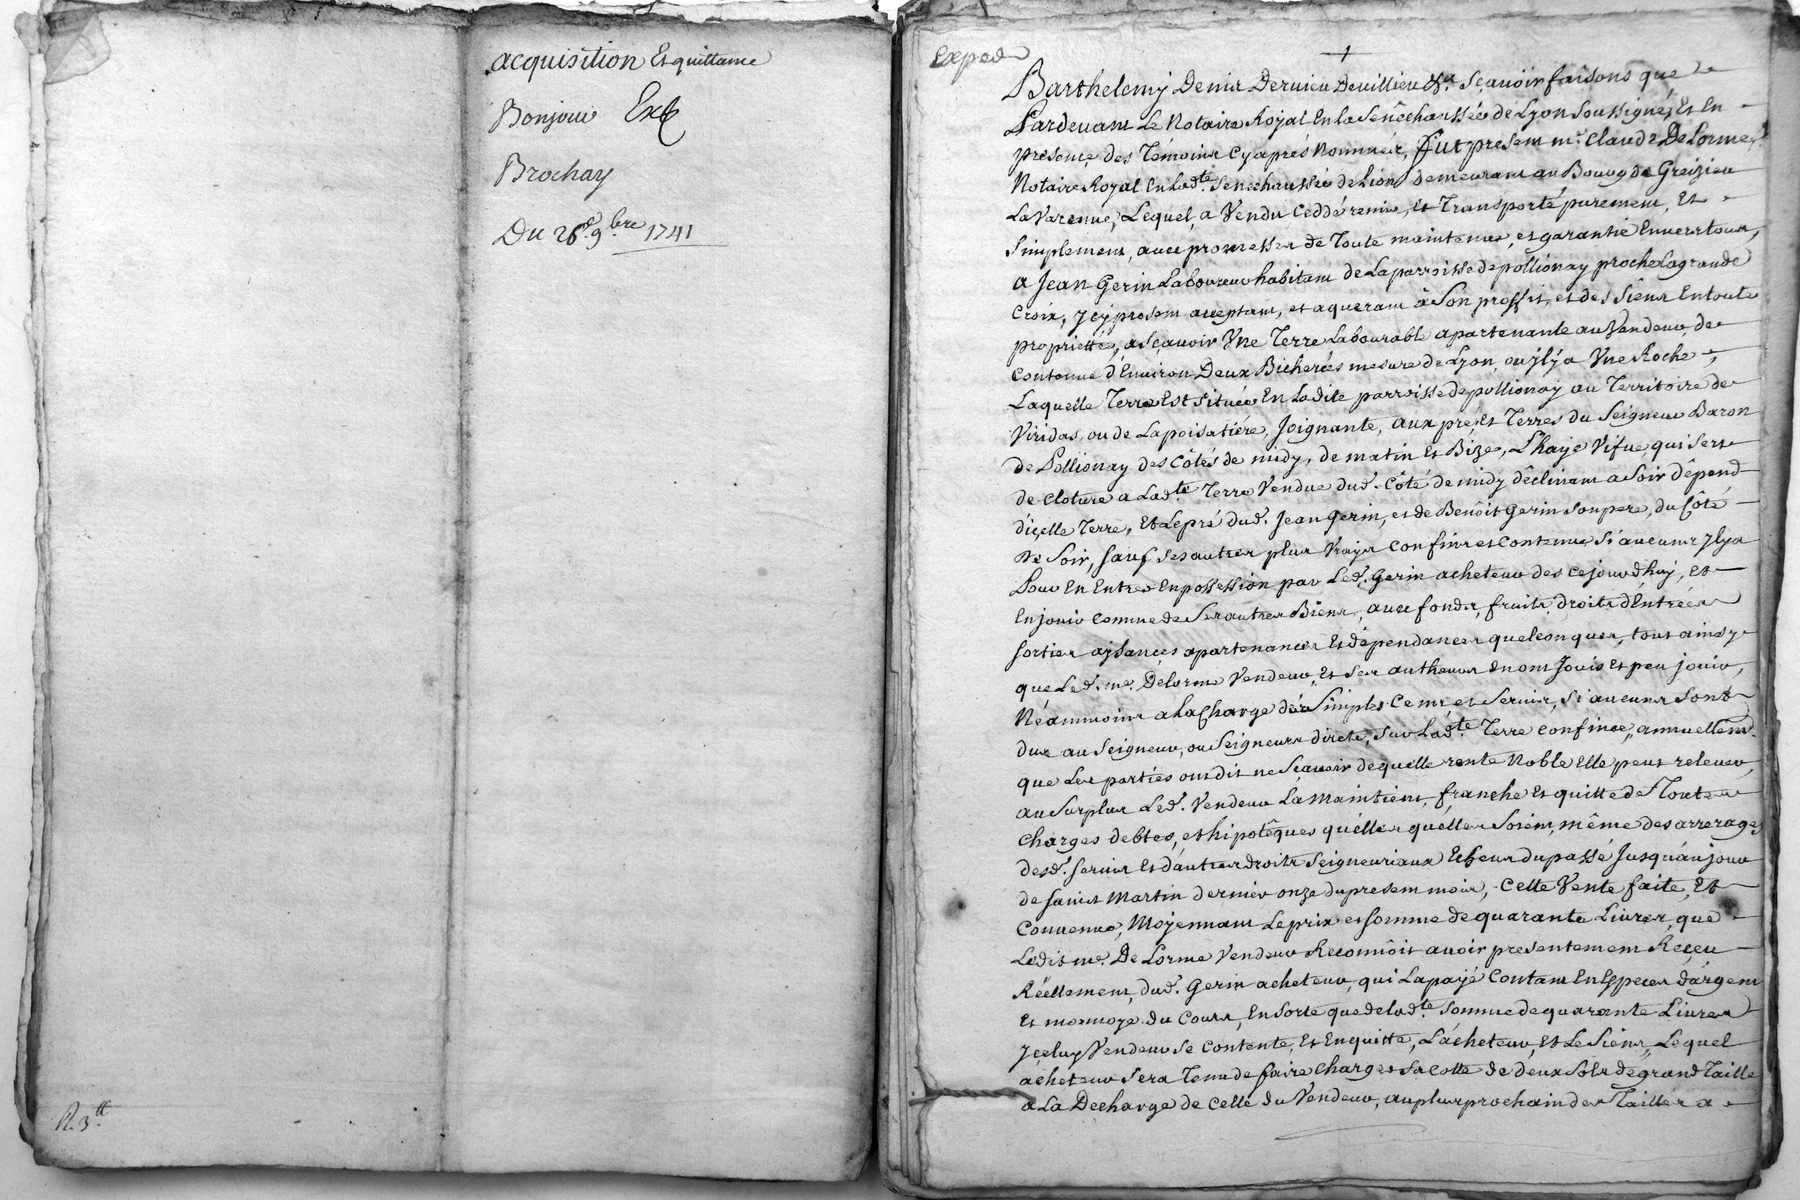 acquisition Et quittance
Bonjour Exp
Brochay
Du 26e 9bre 1741
R. 3tt
Exped
1
Barthelemy Denis Dervieu Devillieu &a. Sçavoir faisons que
Pardevant Le Notaire Royal En la Sénéchaussée de Lyon Soussigné, Et En
presence des Témoins Cyaprés Nommés, fut present me. Claude De Lorme,
Notaire Royal En lad.te Senechaussée de Lion demeurant au Bourg de Greizieu
La Varenne, Lequel, a Vendu Ceddé remis, et Transporté purement, Et
Simplement, avec promesses de Toute maintenue, et garantie Envers tous,
a Jean Gerin Laboureur habitant de La parroisse de pollionay proche La grande
Croix, jcy present acceptant, et aquerant à Son proffit, et des Siens En toute
proprietté, a Sçavoir Une Terre Labourable apartenante au Vendeur de
Contenue d'Environ Deux Bicherées mesure de Lyon ou jl y a Une Roche,
Laquelle Terre Est Située En Ladite parroisse de pollionay au Territoire de
Viridas, ou de La poisatiére, Joignante, aux prés Et Terres du Seigneur Baron
de Pollionay des Côtés de midy, de matin Et Bize, L'haye Vifue, qui Sert
de Cloture a Lad.te Terre Vendue dud. Côté de midy déclinant a Soir dépend
d'icelle Terre, Et Le pré dud. Jean Gerin, et de Benoît Gerin Son pere, du Côté
de Soir, Sauf Ses autres plus Vrays Confins et Contenue Si aucuns Jl y a
Pour En Entrer En possession par Led. Gerin acheteur des Ce jourd'huy, Et
En jouir Comme de Ses autres Biens, avec fonds, fruits, droits d'Entrées
Sorties aysances apartenances Et dépendances quelconques, tout ainsy
que Led. me. Delorme Vendeur, Et Ses autheurs En ont Jouis Et peu jouir,
Néammoins a La Charge des Simples Cens et Servis, Si aucuns Sont
dus au Seigneur, ou Seigneurs directs, Sur Lad.te Terre confinée, annuellemt.
que Les parties ont dit ne Sçavoir de quelle rente Noble Elle peut relever,
au Surplus Led. Vendeur La Maintient franche Et quitte de Toutes
Charges debtes, et hipotêques qu'elles qu'elles Soient, même des arrerages
desd. Servis Et d'autres droits Seigneuriaux Echeus du passé Jusqu'au jour
de Saint Martin dernier onze du present mois, Cette Vente faite, Et
Convenue, Moyennant Le prix et Somme de quarante Livres, que
Ledit me. De Lorme Vendeur Reconnoit avoir presentement Reçeu
Réellement, dud. Gerin acheteur, qui La payé Contant En Especes d'argent
Et monnoye du Cours, En Sorte que de lad.te Somme de quarante Livres
jceluy Vendeur Se Contente, Et En quitte, L'acheteur, Et Le Siens, Lequel
acheteur Sera Tenu de faire Charger Sa Cotte de deux Sols de grand Taille
a La Decharge de Celle du Vendeur, au plus prochain des Tailles a